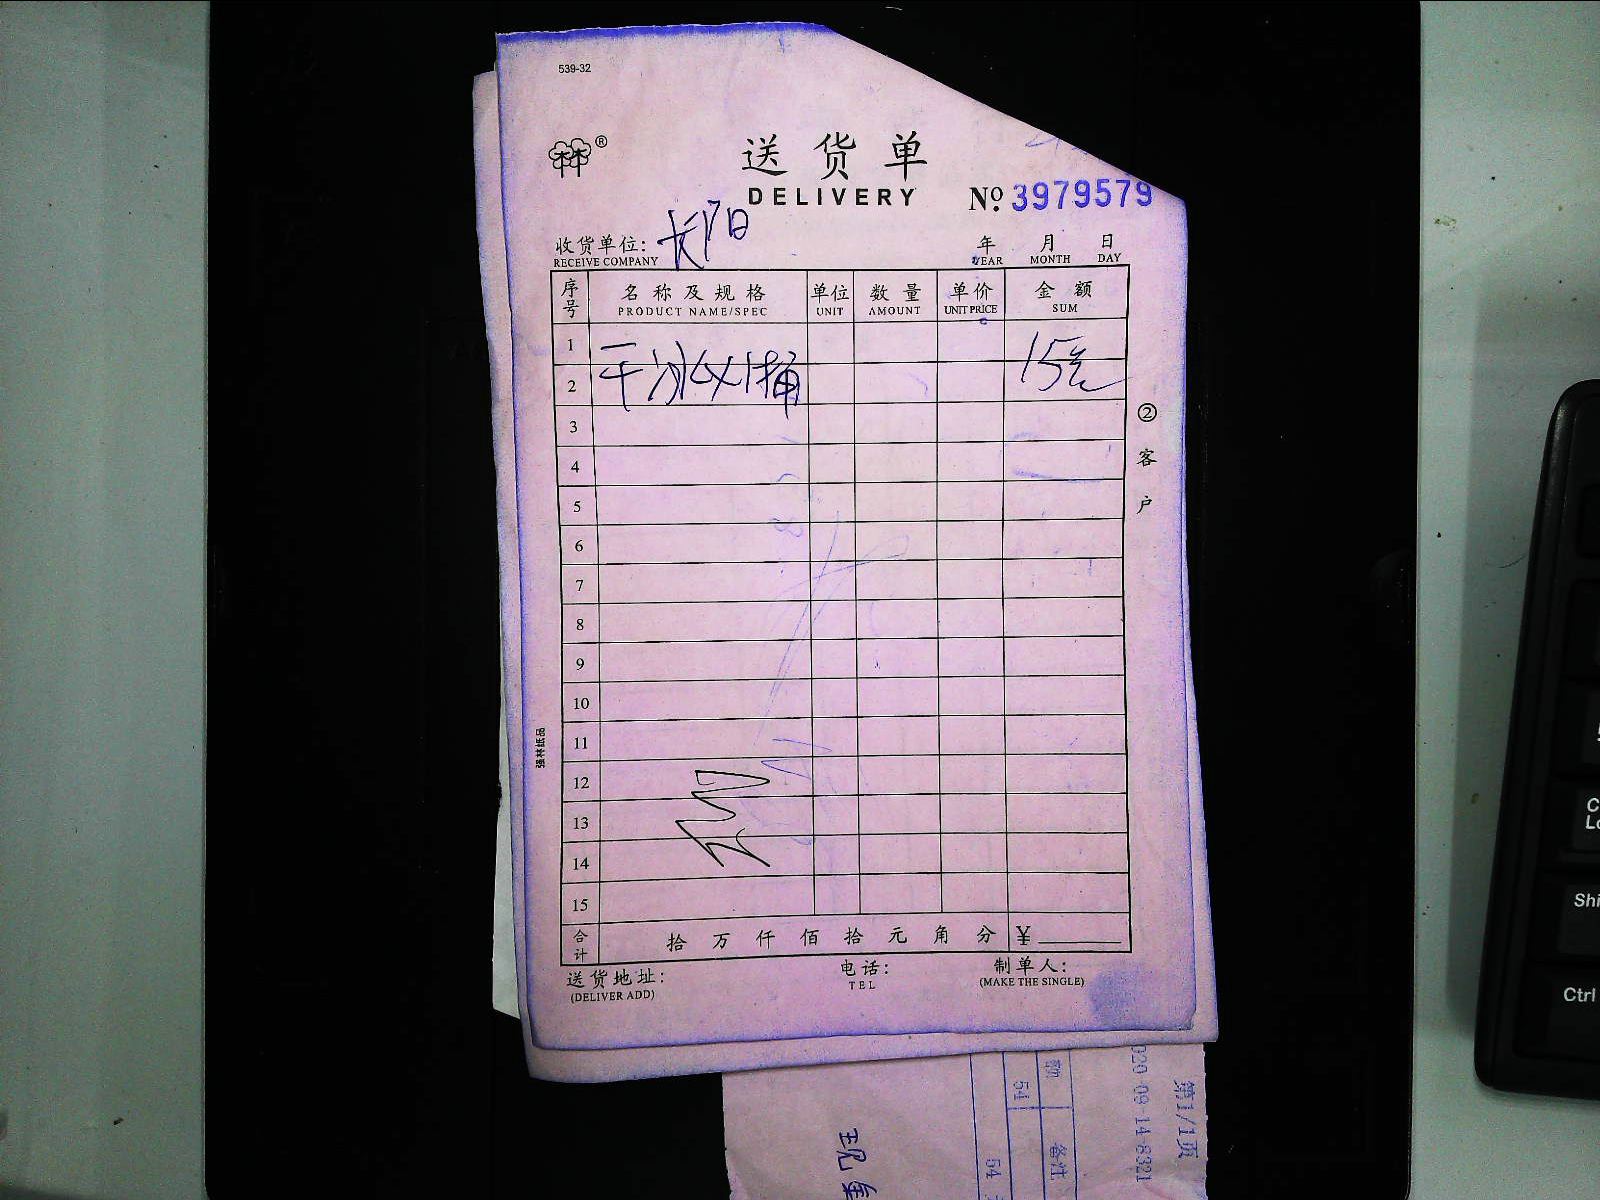 539-32
®
送货单
DELIVERY
№ 3979579
收货单位: 长阳
RECEIVE COMPANY
年 月 日
YEAR MONTH DAY
序号 名称及规格 单位 数量 单价 金额
PRODUCT NAME/SPEC UNIT AMOUNT UNIT PRICE SUM
1
2 15元
3
4
5
6
7
8
9
10
11
12
13
14
15
合计 拾 万 仟 佰 拾 元 角 分 ¥
送货地址: 电话: 制单人:
(DELIVER ADD) TEL (MAKE THE SINGLE)
②客户
强林纸品
第1/1页
020 09-14-8321
备注
54
54
现
Shi
Ctrl